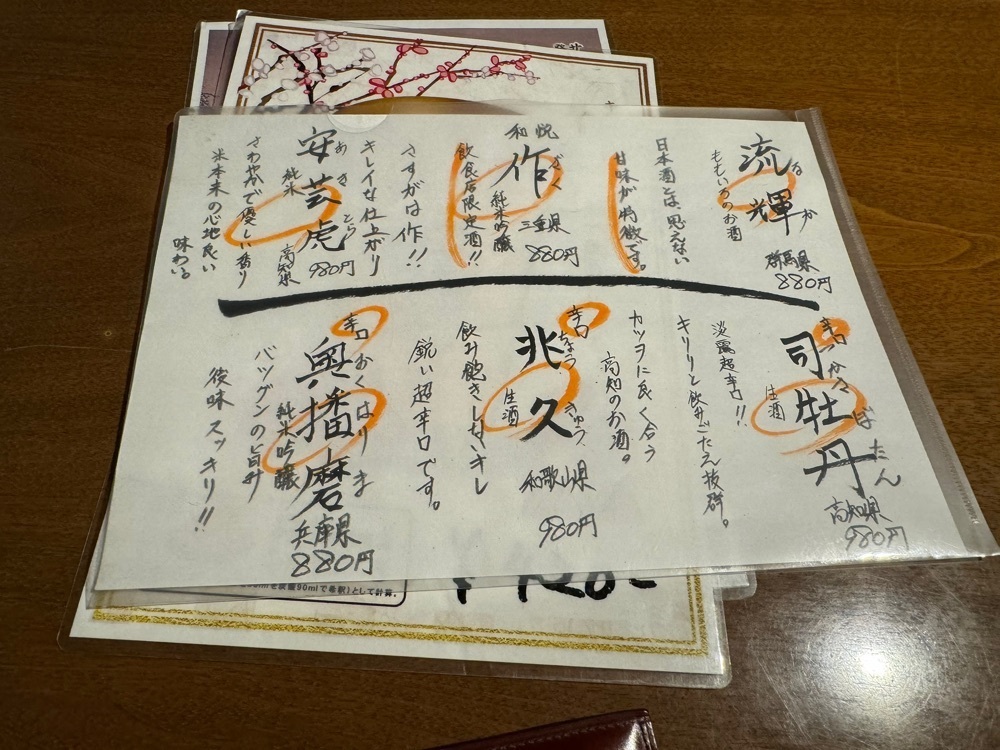 流輝
るか
ももいろのお酒
群馬県
880円
日本酒とは思えない
甘味が特徴です。
和悦
作
ざく
純米吟醸
三重県
880円
飲食店限定酒!!
さすがは作!!
キレイな仕上がり
安芸虎
あきとら
純米
高知県
980円
さわやかで優しい香り
米本来の心地良い
味わい
辛口
司牡丹
つかさぼたん
生酒
高知県
980円
淡麗超辛口!!
キリリと飲みごたえ抜群。
カツヲに良く合う
高知のお酒。
辛口
兆久
ちょうきゅう
生酒
和歌山県
980円
飲み飽きしないキレ
鋭い超辛口です。
辛口
奥播磨
おくはりま
純米吟醸
兵庫県
880円
バツグンの旨み
後味スッキリ!!
90mlで希釈)として計算。